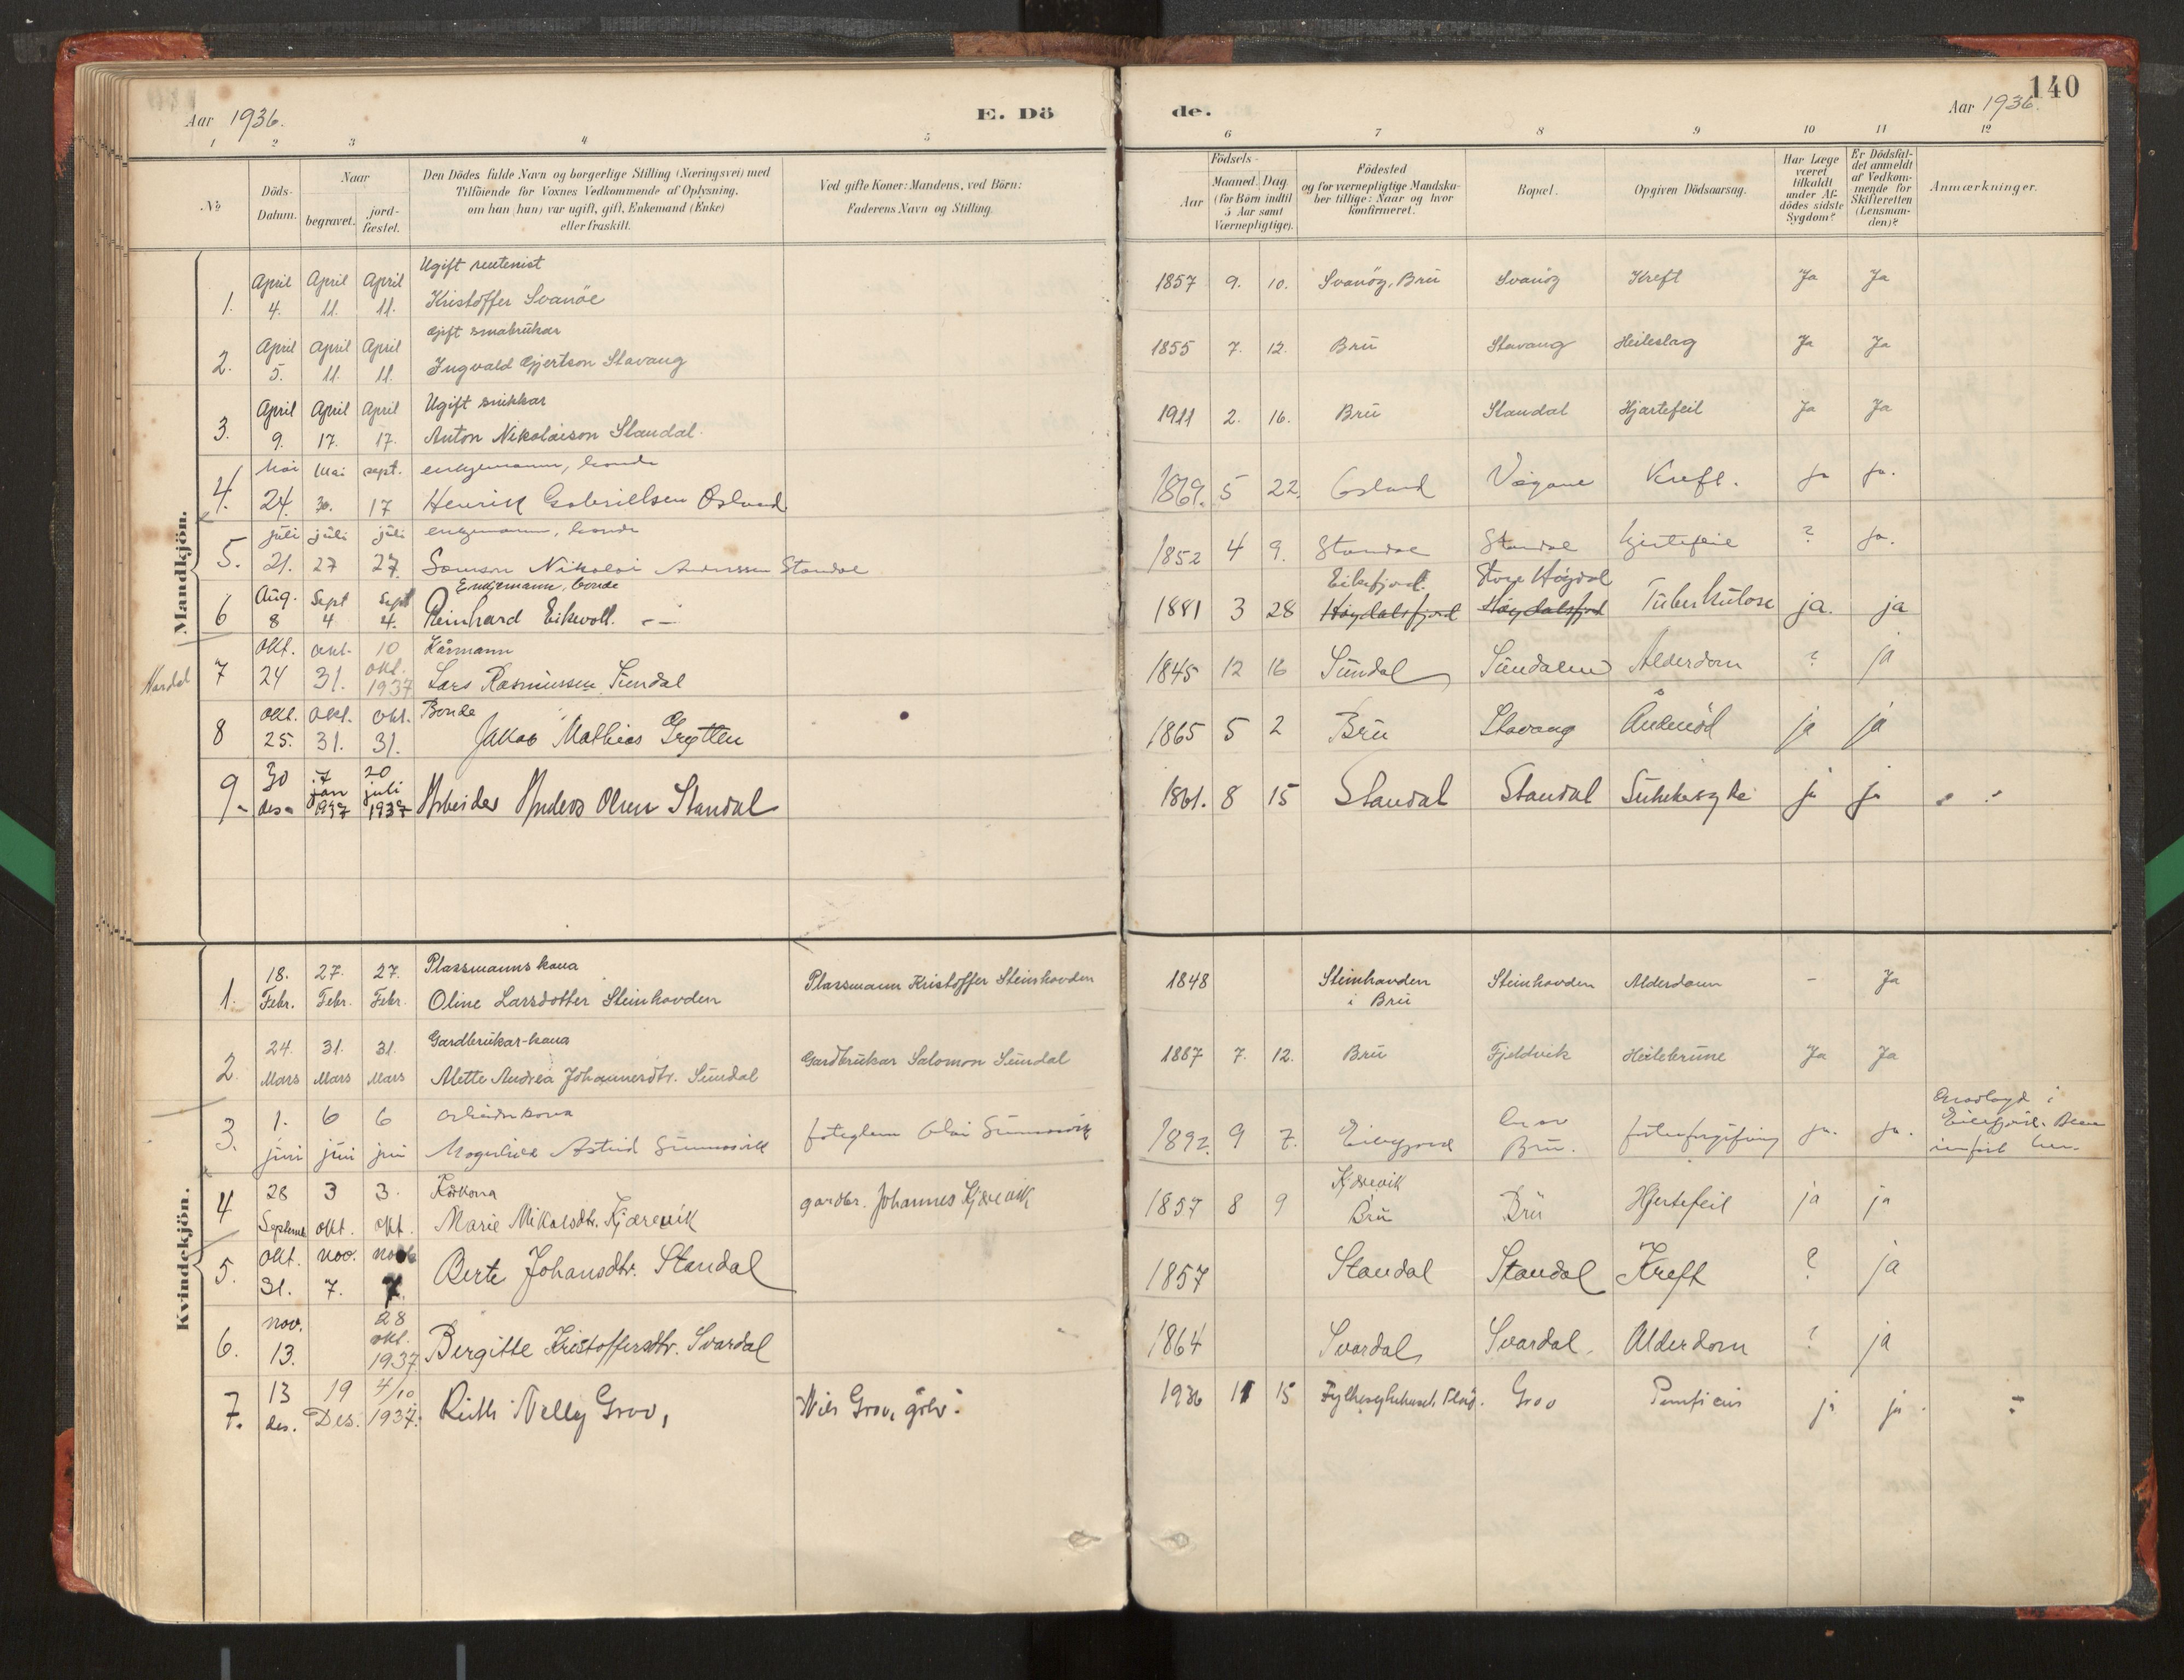 140
Aar 1936.
E. Dö
de.
Aar 1936.
1 2 3 4 5 6 7 8 9 10 11 12
№
Döds-Datum.
Naar
begravet.
jord-fæstet.
Den Dödes fulde Navn og borgerlige Stilling (Næringsvei) med
Tilföiende for Voxnes Vedkommende af Oplysning,
om han (hun) var ugift, gift, Enkemand (Enke)
eller fraskilt.
Ved gifte Koner: Mandens, ved Börn:
Faderens Navn og Stilling.
Födsels-
Aar
Maaned. Dag.
(for Börn indtil
5 Aar samt
Værnepligtige).
Födested
og for værnepligtige Mandska-
ber tillige: Naar og hvor
konfirmeret.
Bopæl.
Opgiven Dödsaarsag.
Har Læge
været
tilkaldt
under Af-
dödes sidste
Sygdom?
Er Dödsfal-
det anmeldt
af Vedkom-
mende for
Skifteretten
(Lensman-
den)?
Anmærkninger.
Mandkjön.
Ugift rentenist
1. April 4. April 11. April 11. Kristoffer Svanöe 1857 9. 10. Svanöy, Bru Svanöy Kreft Ja Ja
Gift småbrukar
2. April 5. April 11. April 11. Ingvald Gjertson Stavang 1855 7. 12. Bru Stavang Heileslag Ja Ja
Ugift snikkar
3. April 9. April 17. April 17. Anton Nikolaison Standal 1911 2. 16. Bru Standal Hjartefeil Ja Ja
enkjemann, bonde
4. Mai 24. Mai 30. sept. 17 Henrik Gabriellsen Osland 1869. 5 22. Osland Vågane Kreft. ja ja.
enkjemann, bonde
5. juli 21. juli 27 juli 27. Samson Nikolai Anderssen Standal 1852 4 9. Standal Standal hjertefeil ? ja.
Enkjemann, bonde
6 Aug. 8 Sept 4 Sept 4. Reinhard Eikevoll. 1881 3 28 Eikefjord. Høydalsfjord Store Høydal Høydalsfjord Tuberkulose ja. ja
Kårmann
Nordal 7 Okt. 24 okt. 31. 10 okt. 1937 Lars Rasmussen Sundal 1845 12 16 Sundal Sundalen Alderdom ? ja
Bonde
8 okt. 25. okt. 31. okt. 31. Jakob Mathias Grytten 1865 5 2 Bru Stavang Åndenöd ja ja
9. 30 des. 7 jan 1937 20 juli 1937 Arbeider Anders Olsen Standal 1861. 8 15 Standal Standal Sukkersyke ja ja
Kvindekjön.
Plassmannskona
1. 18. Febr. 27. Febr. 27. Febr. Oline Larsdotter Steinhovden Plassmann Kristoffer Steinhovden 1848 Steinhovden i Bru Steinhovden Alderdom - Ja
Gardbrukar-kona
2. 24. Mars 31. Mars 31. Mars Mette Andrea Johannesdtr. Sundal Gardbrukar Salomon Sundal 1867 7. 12. Bru Fjeldvik Heilebrune Ja Ja
3. 1. juni 6 juni 6 juni Magnhild Astrid 1892. 9 7. Eikefjord Bru. ja. ja. i Eikefjord.
Kårkona
4 28 Septemb 3 okt. 3. okt. Marie Mikalsdtr. Kjærevik gardbr. Johannes Kjærevik 1857 8 9 Kjærevik Bru Bru Hjertefeil ja ja
5. Okt. 31. nov. 7. nov 7. Berte Johansdtr. Standal 1857 Standal Standal Kreft ? ja
6. nov. 13. 28 okt. 1937 Bergitte Kristoffersdtr. Svardal 1864 Svardal Svardal. Alderdom ? ja
7. 13 des. 19 Des. 4/10 1937. Ruth Nelly Grov, Nils Grov, 1936 11 15 Fylkessjukehuset, Florö. Grov ja ja. -